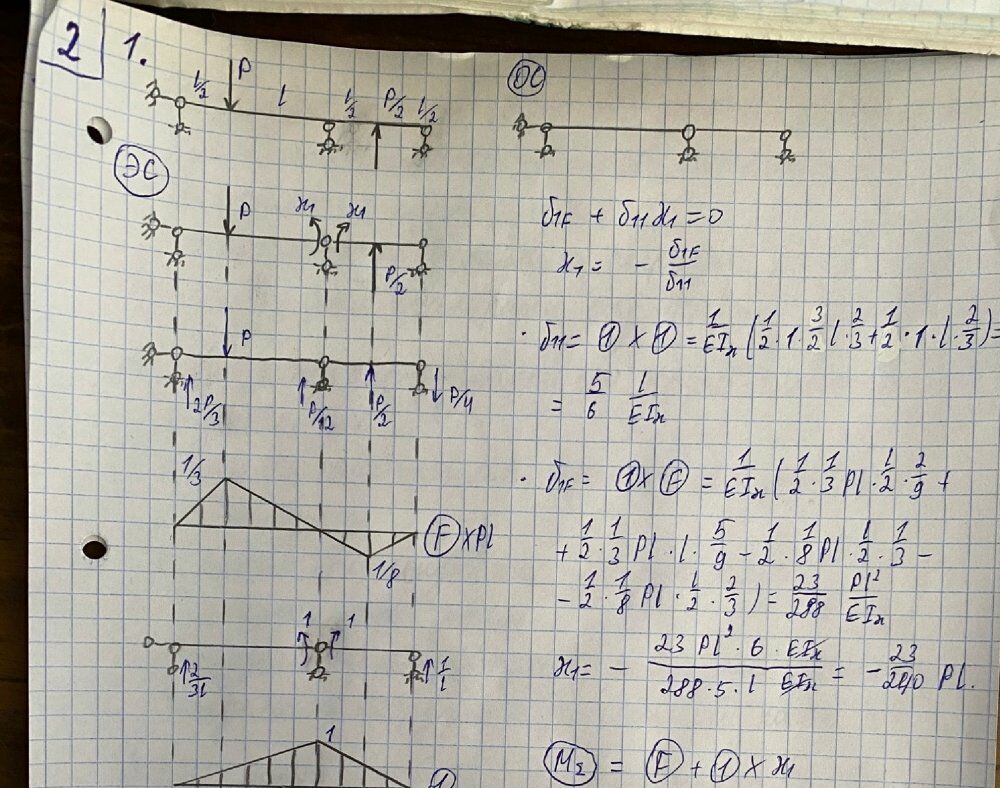 2 1.
l/2 P l l/2 P/2 l/2
ОС
ЭС
P x₁ x₁ P/2
δ₁F + δ₁₁x₁ = 0
x₁ = - δ₁F/δ₁₁
P
2P/3 P/12 P/2 P/4
· δ₁₁ = ① × ① = 1/EIₓ (1/2 · 1 · 3/2 l · 2/3 + 1/2 · 1 · l · 2/3) =
= 5/6 l/EIₓ
1/3
1/8
Ⓕ × Pl
· δ₁F = ① × Ⓕ = 1/EIₓ (1/2 · 1/3 Pl · l/2 · 2/9 +
+ 1/2 · 1/3 Pl · l · 5/9 - 1/2 · 1/8 Pl · l/2 · 1/3 -
- 1/2 · 1/8 Pl · l/2 · 2/3) = 23/288 Pl²/EIₓ
1 1
2/3l 1/l
x₁ = - 23 Pl² · 6 · EIₓ / 288 · 5 · l EIₓ = - 23/240 Pl.
1
①
M_Σ = Ⓕ + ① × x₁